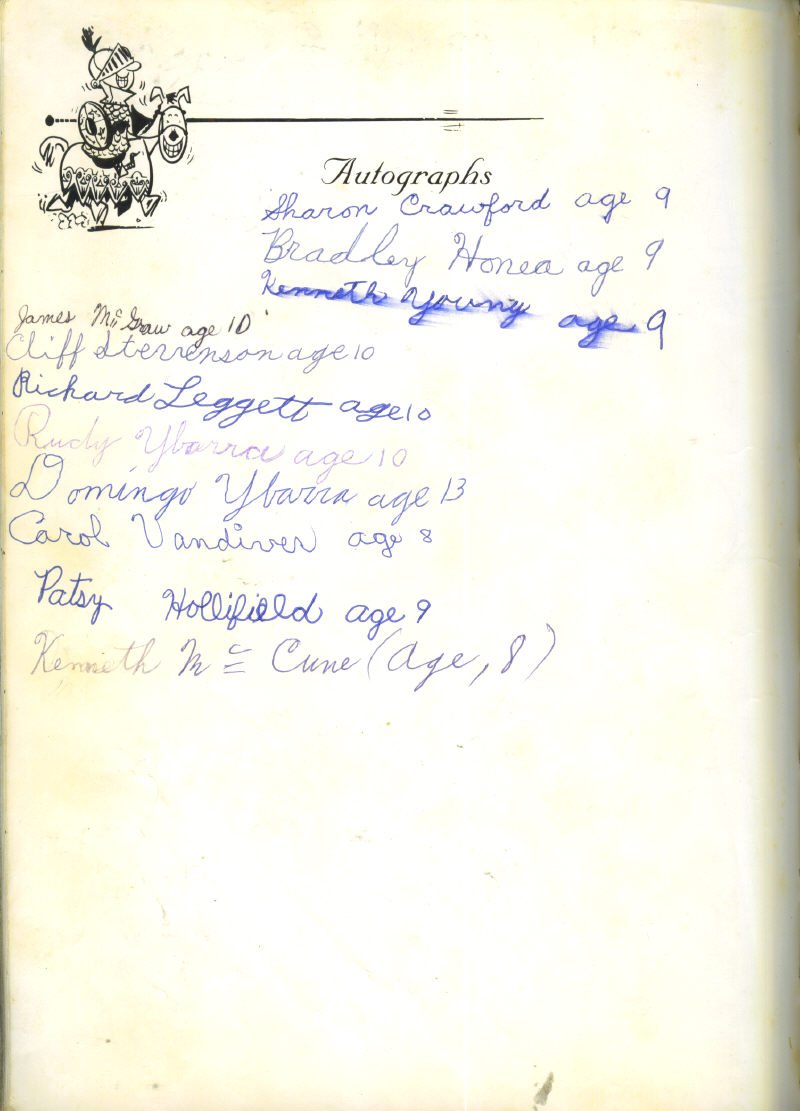 Autographs
Sharon Crawford age 9
Bradley Honea age 9
Kenneth Young age 9
James McGraw age 10
Cliff Sterrenson age 10
Richard Leggett age 10
Rudy Ybarra age 10
Domingo Ybarra age 13
Carol Vandiver age 8
Patsy Hollifield age 9
Kenneth Mc Cune (Age, 8)